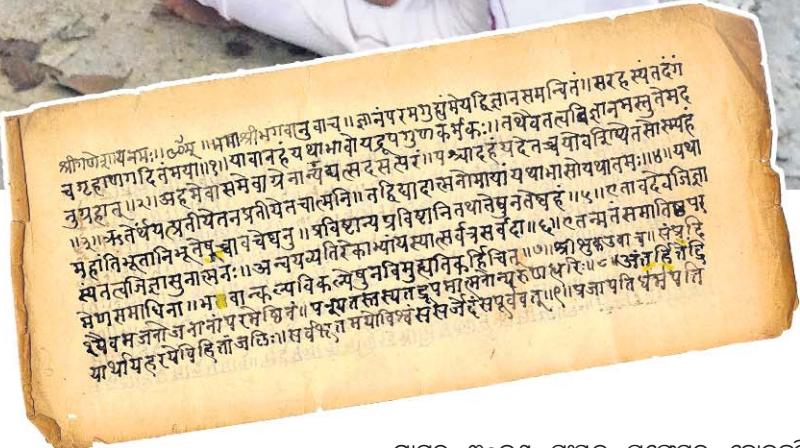 श्रीगणेशायनमः॥ॐम् ॥नमःश्रीभगवानुवाच॥ज्ञानंपरमगुह्यंमेयद्विज्ञानसमन्वितं॥सरहस्यंतदंगं
चगृहाणगदितंमया॥१॥यावानहंयथाभावोयद्रूपगुणकर्मकः॥तथैवतत्वविज्ञानमस्तुतेमद
नुग्रहात्॥२॥अहमेवासमेवाग्रेनान्यद्यत्सदसत्परं॥पश्चादहंयदेतच्चयोवशिष्येतसोस्म्यहं
॥३॥ऋतेर्थंयत्प्रतीयेतनप्रतीयेतचात्मनि॥तद्विद्यादात्मनोमायांयथाभासोयथातमः॥४॥यथा
महांतिभूतानिभूतेषूच्चावचेष्वनु॥प्रविष्टान्यप्रविष्टानितथातेषुनतेष्वहं॥५॥एतावदेवजिज्ञा
स्यंतत्वजिज्ञासुनात्मनः॥अन्वयव्यतिरेकाभ्यांयस्यात्सर्वत्रसर्वदा॥६॥एतन्मतंसमातिष्ठपर
मेणसमाधिना॥भवान्कल्पविकल्पेषुनविमुह्यतिकर्हिचित्॥७॥श्रीशुकउवाच॥संप्रदि
श्यैवमजनोजनानांपरमेष्ठिनं॥पश्यतस्तस्यतद्रूपमात्मनोन्यरुणद्धरिः॥८॥अंतर्हितेंद्रि
यार्थायहरयेविहितांजलिः॥सर्वभूतमयोविश्वंससर्जेदंसपूर्ववत्॥९॥प्रजापतिर्धर्मपति